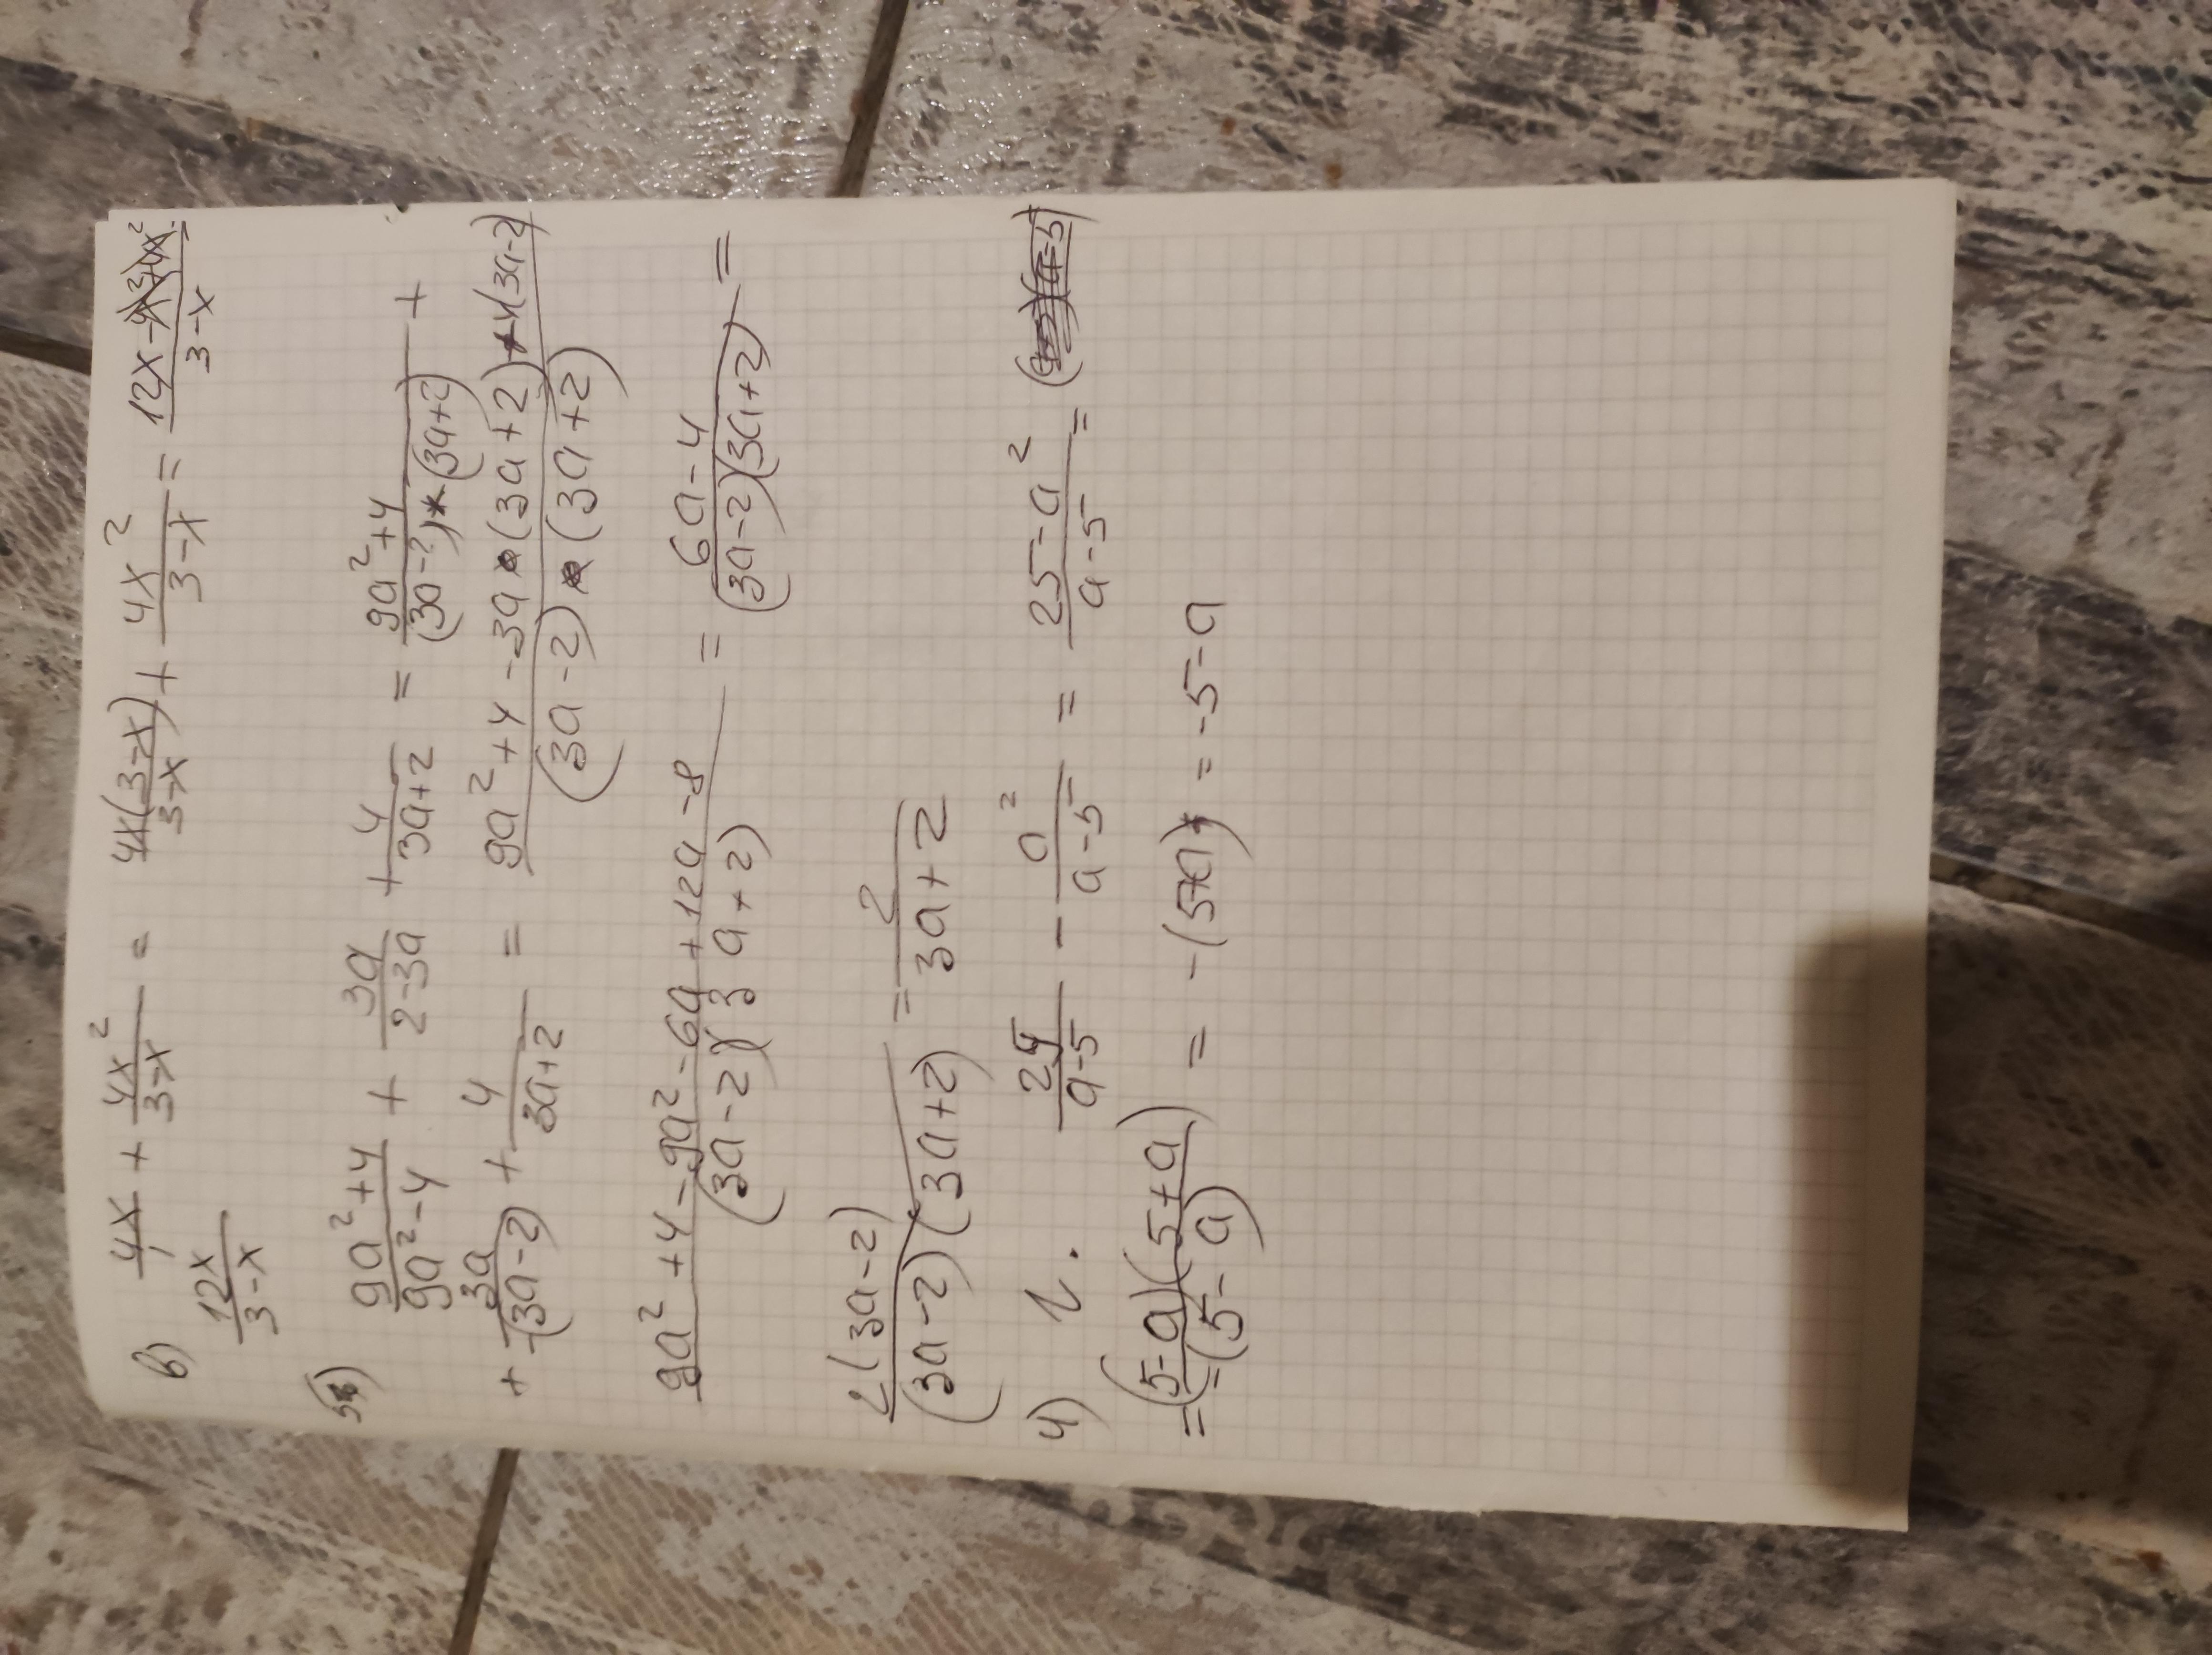 в) 4x/1 + 4x²/3-x = 4x(3-x)/3-x + 4x²/3-x = 12x-4x²+4x²/3-x =
12x/3-x
9a²+4/9a²-4 + 3a/2-3a + 4/3a+2 = 9a²+4/(3a-2)*(3a+2) +
+ 3a/-(3a-2) + 4/3a+2 = 9a²+4-3a(3a+2)+4(3a-2)/(3a-2)(3a+2)
9a²+4-9a²-6a+12a-8/(3a-2)(3a+2) = 6a-4/(3a-2)(3a+2) =
2(3a-2)/(3a-2)(3a+2) = 2/3a+2
4) 1. 25/a-5 - a²/a-5 = 25-a²/a-5 =
= (5-a)(5+a)/-(5-a) = -(5+a) = -5-a